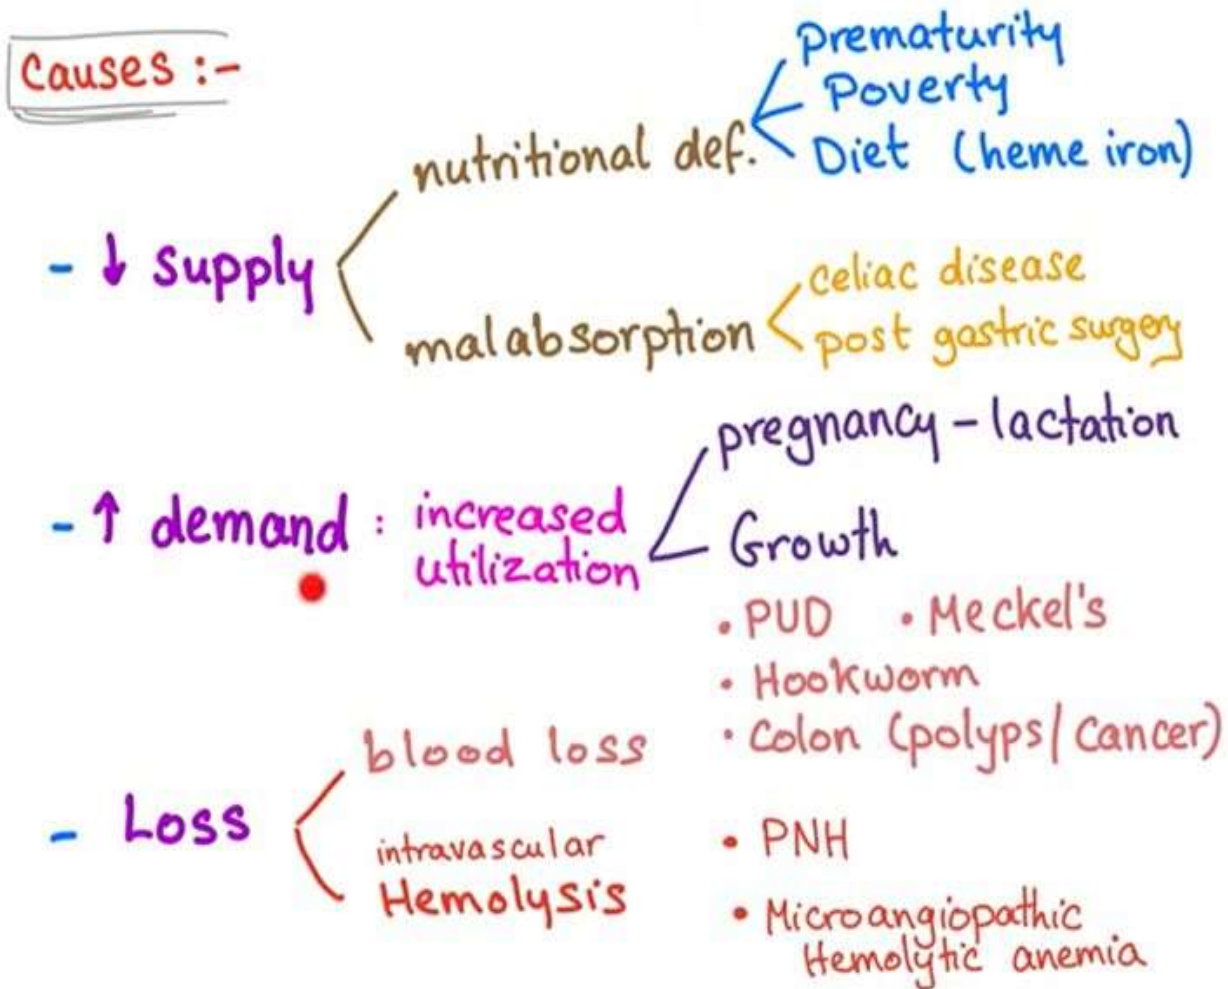 Causes :-
- ↓ supply
nutritional def.
Prematurity
Poverty
Diet (heme iron)
malabsorption
celiac disease
post gastric surgery
- ↑ demand : increased
utilization
pregnancy - lactation
Growth
- Loss
blood loss
• PUD • Meckel's
• Hookworm
• Colon (polyps/cancer)
intravascular
Hemolysis
• PNH
• Microangiopathic
Hemolytic anemia